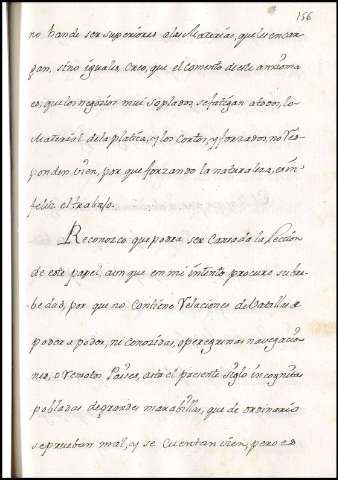 156
no hande ser superiores alas Materias, que les encar-
gan, sino iguales. Creo, que el comento de este
co, que los negocios mui soplados, se fatigan atodos, lo
Material dela platica, y los cortos, y forzados, no res-
ponden vien, por que forzando la naturaleza, es in-
feliz el trabajo.
Reconozco que podra ser Cansada la Leccion
de este papel, aunque en mi intento procure su bre-
bedad, por que no Contiene Relaciones de Batallas de
poder a poder, ni Conocidas, o peregrinas navegacio-
nes, o remotos Paises, asta el presente Siglo incognitos
pobladas de grandes marabillas, que de ordinario
se prueban mal, y se Cuentan vien, pero es